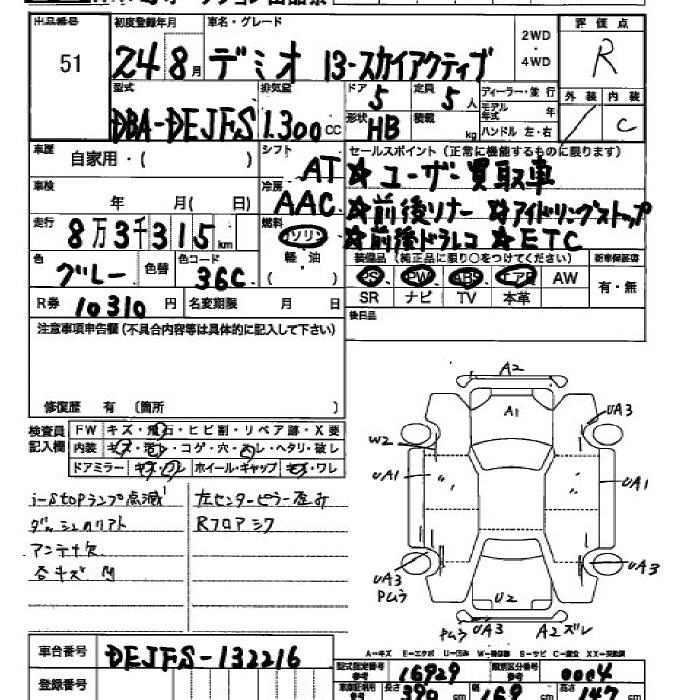 出品番号 初度登録年月 車名・グレード 2WD・4WD 評価点
51 24 8月 デミオ 13-スカイアクティブ R
型式 排気量 ドア 定員 ディーラー・並行 外装 内装
DBA-DEJFS 1.300cc 5 5人 モデル年式 年 C
形状 HB 積載 kg ハンドル 左・右
車歴 自家用・( ) シフト AT セールスポイント(正常に機能するものに限ります)
☆ユーザー買取車
車検 年 月(日) 冷房 AAC ☆前後ソナー ☆アイドリングストップ
走行 8万3千315km 燃料 ガソリン ☆前後ドラレコ ☆ETC
色 グレー 色替 色コード 36C 軽・油 ( )
装備品(純正品に限り○をつけてください) 新車保証書
PS PW ABS エアB AW 有・無
SR ナビ TV 本革
R券 10310円 名変期限 月 日 後日品
注意事項申告欄(不具合内容等は具体的に記入して下さい)
修復歴 有 (箇所 )
検査員記入欄 FW キズ・飛石・ヒビ割・リペア跡・X要
内装 キズ・汚レ・コゲ・穴・ヘタリ・破レ
ドアミラー キズ・ワレ ホイール・キャップ キズ・ワレ
i-stopランプ点滅 左センターピラー歪み
アンテナ欠 Rフロアシワ
各キズ凹
A2
A1
UA3
W2
UA1
UA1
UA3
Pムラ
UA3
U2
Pムラ UA3
A2ズレ
A-キズ E-エクボ U-凹み W-補修跡 S-サビ C-腐食 XX-交換済
車台番号 DEJFS-132216
型式指定番号 16929 類別区分番号 0004
登録番号
長さ 390cm 幅 169cm 高さ 147cm